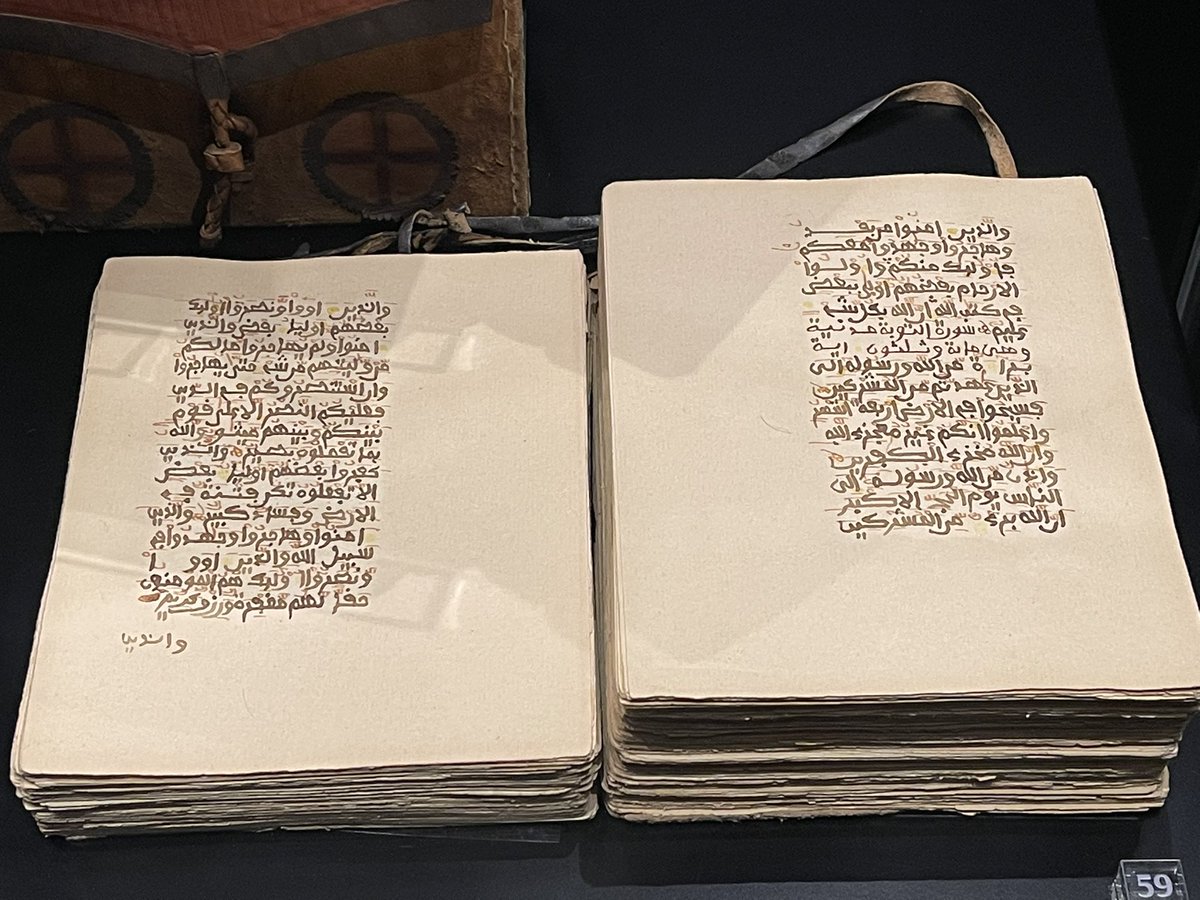 والذين اووا ونصروا اوليك
بعضهم اولياء بعض والذين
امنوا ولم يهاجروا ما لكم
من وليتهم من شيء حتى يهاجروا
وان استنصروكم في الدين
فعليكم النصر الا على قوم
بينكم وبينهم ميثق والله
بما تعملون بصير والذين
كفروا بعضهم اولياء بعض
الا تفعلوه تكن فتنة في
الارض وفساد كبير والذين
امنوا وهاجروا وجهدوا في
سبيل الله والذين اووا
ونصروا اوليك هم المومنون
حقا لهم مغفرة ورزق كريم
والذين
والذين امنوا من بعد
وهاجروا وجهدوا معكم
فاوليك منكم واولوا
الارحام بعضهم اولى ببعض
في كتب الله ان الله بكل شيء
عليم سورة التوبة مدنية
وهي ماية وثلثون اية
براءة من الله ورسوله الى
الذين عهدتم من المشركين
فسيحوا في الارض اربعة اشهر
واعلموا انكم غير معجزي الله
وان الله مخزي الكفرين
واذان من الله ورسوله الى
الناس يوم الحج الاكبر
ان الله بريء من المشركين
59